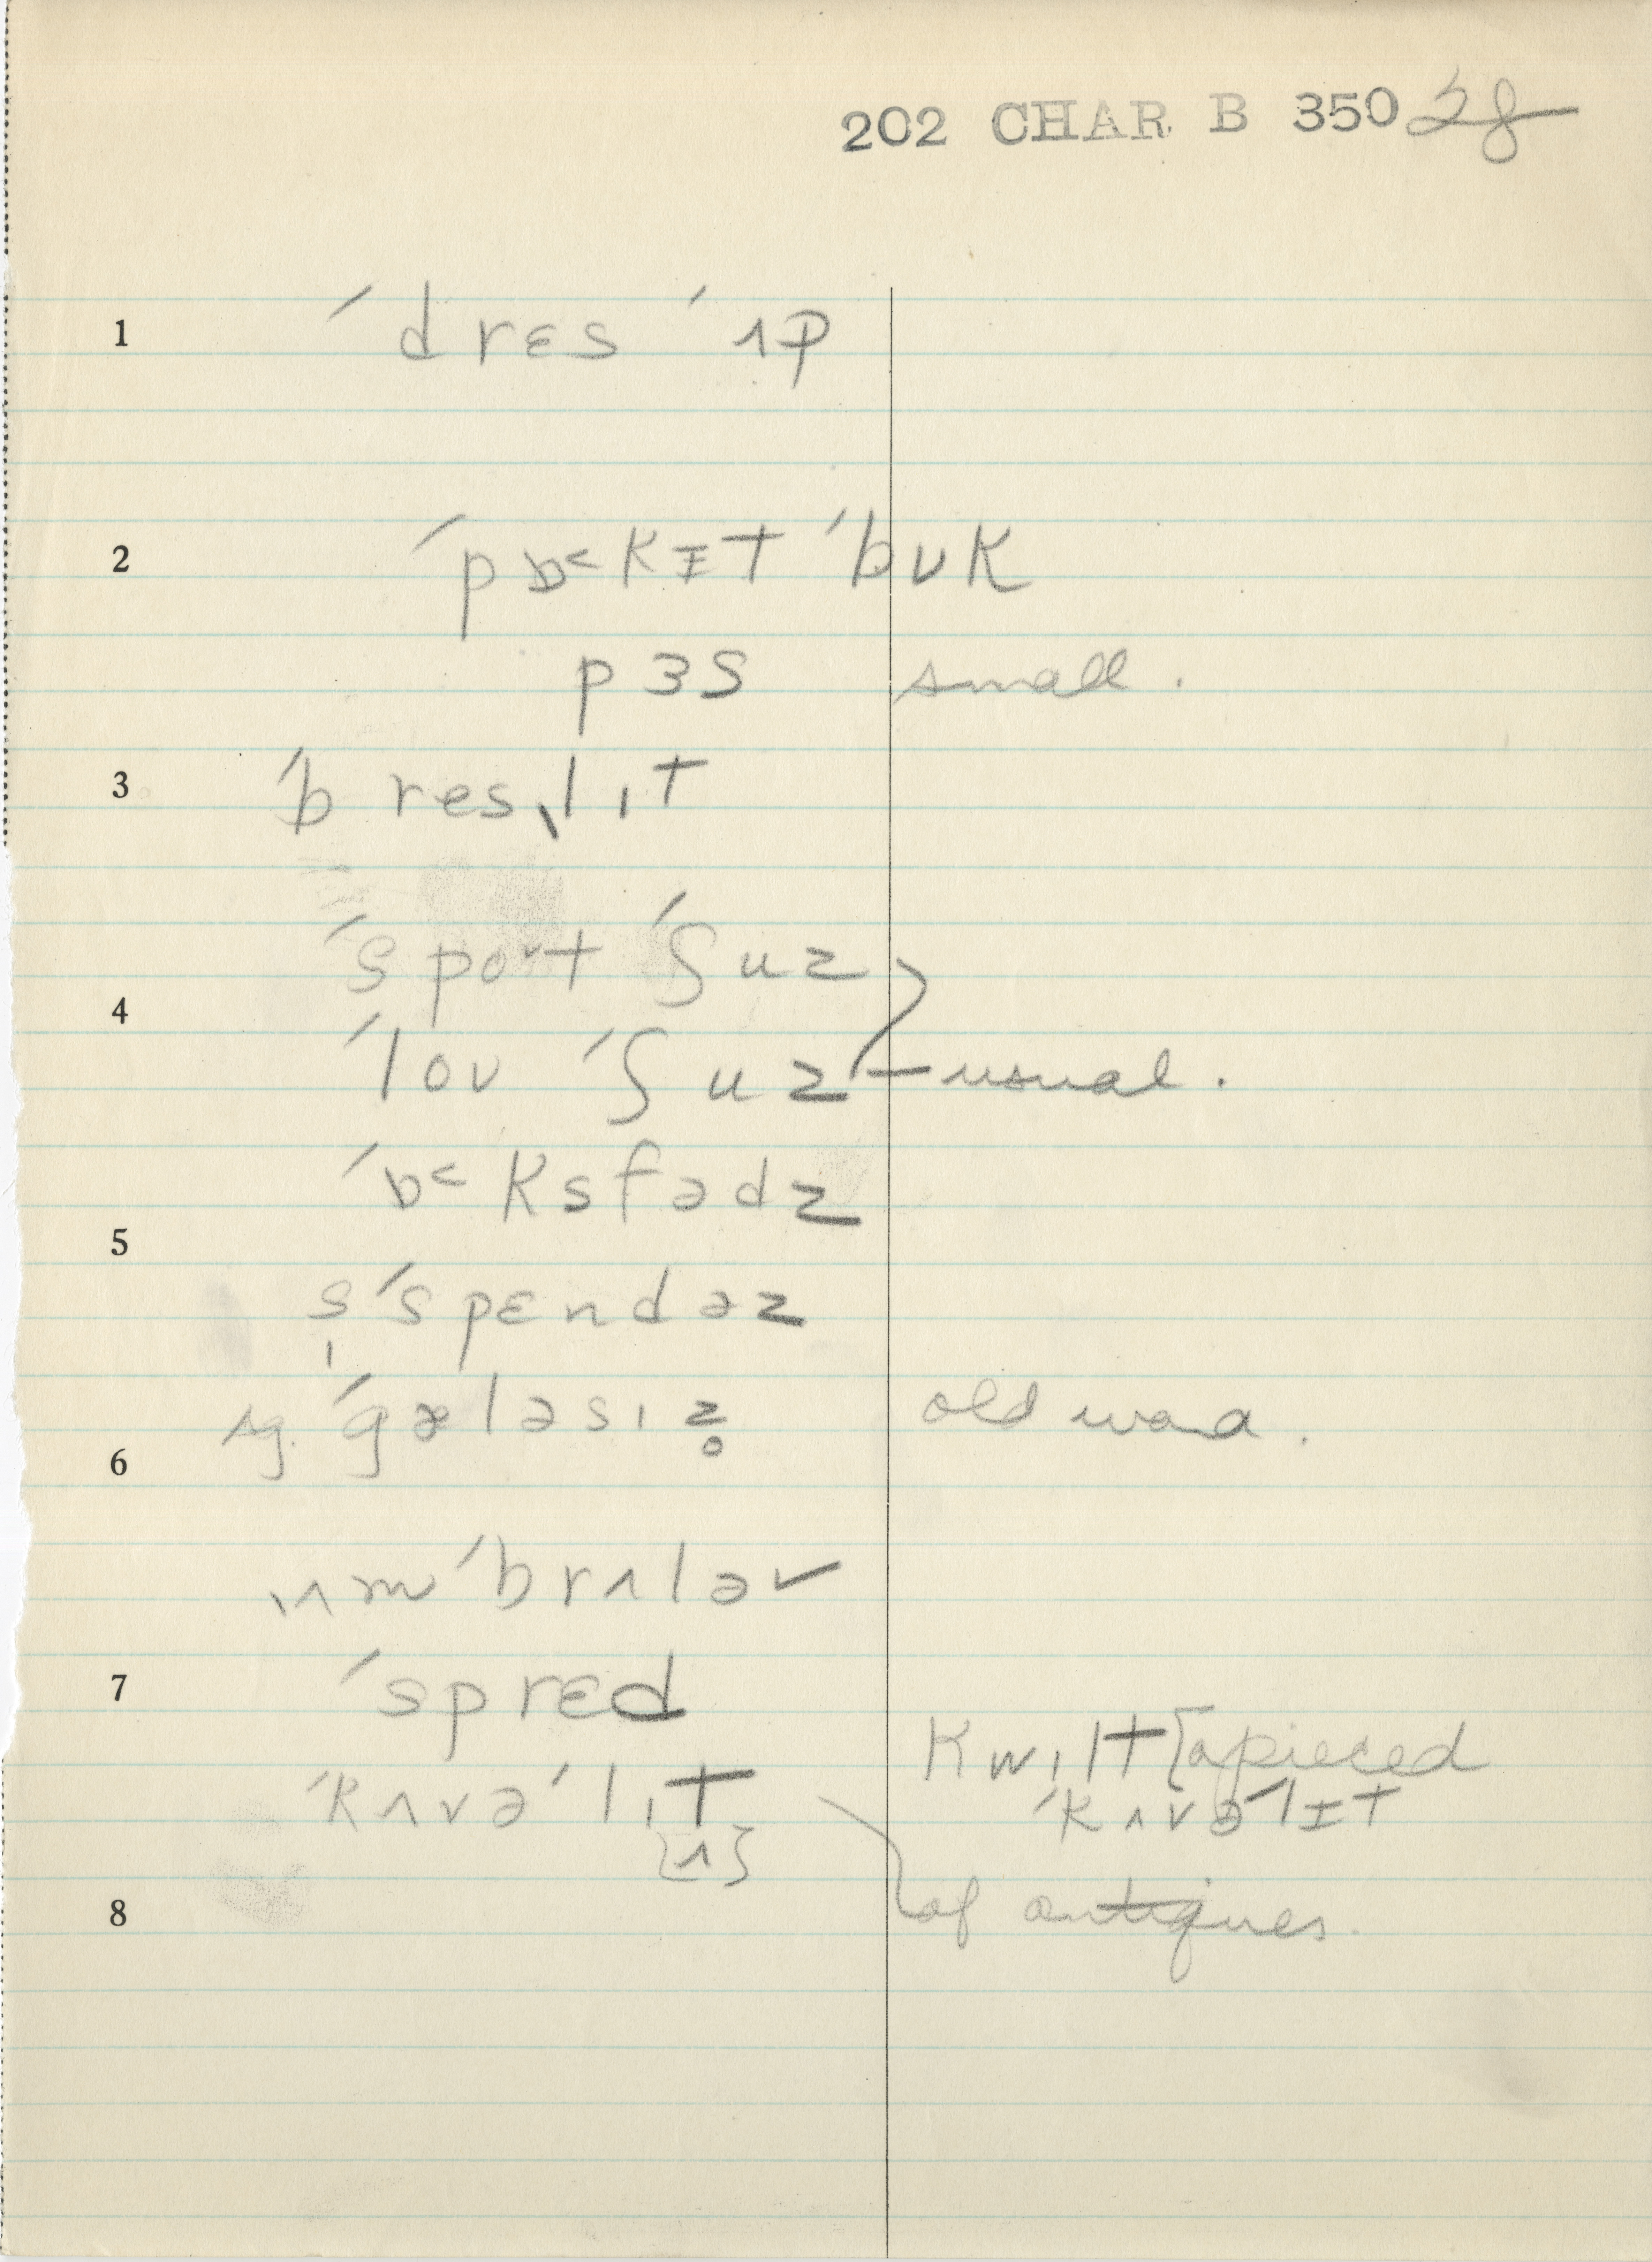 202 CHAR B 350 28
1 ˈdrɛs ˈʌp
2 ˈpɒ˂kɪt ˈbʊk
pɜs small.
3 ˈbresˌlɪt
ˈsport ˈʃuz
4
ˈloʊ ˈʃuz — usual.
ˈɒ˂ksfədz
5
s̩ˈspɛndəz
sg. ˈgæləsɪz̥ old word.
6
ˌʌmˈbrʌləv
7 ˈsprɛd
kwɪlt [a pieced
ˈkʌvəˈlɪt ˈkʌvəˈlɪt
{ʌ}
8 of antiques.